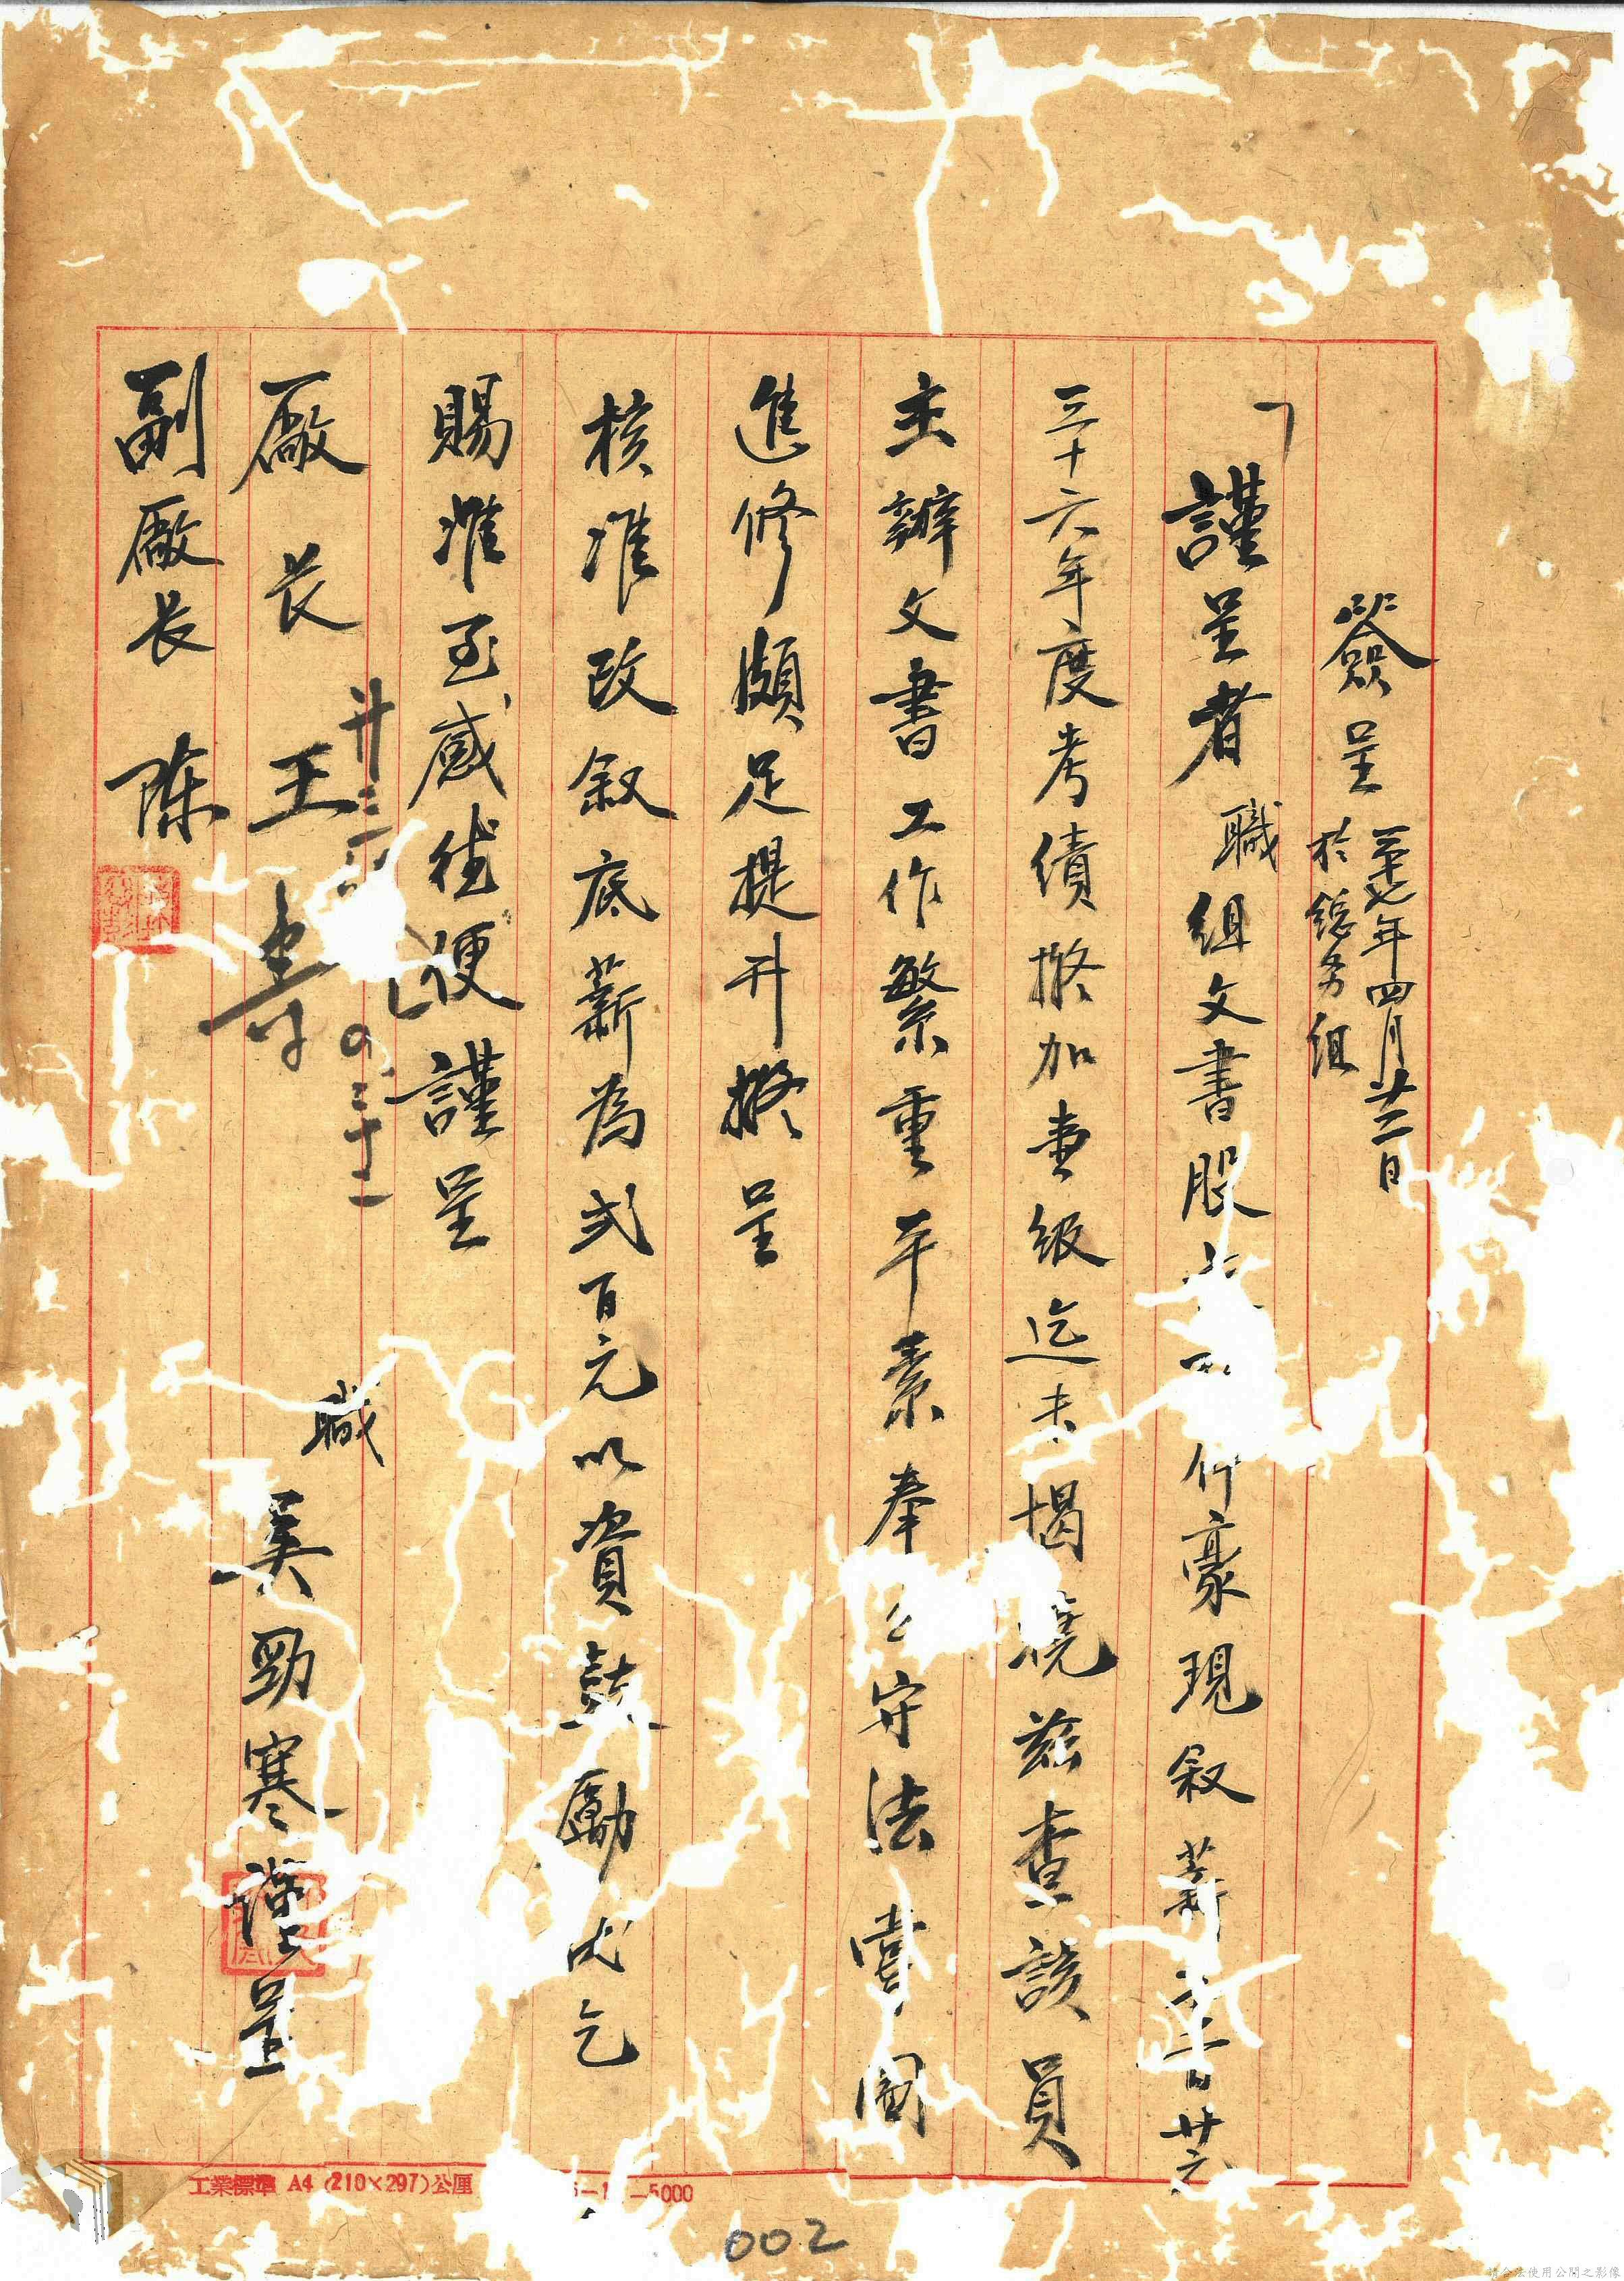 簽呈 三十七年四月廿二日
於總務組
謹呈者職組文書股 竹豪現敘薪 百廿六
三十六年度考績擬加壹級迄未揭曉茲查該員
主辦文書工作繁重平素奉公守法嘗圖
進修頗足提升擬呈
核准改敘底薪為弍百元以資鼓勵 乞
賜准至感德便謹呈
廠長 王
副廠長 陳
職 吳勁寒謹呈
工業標準 A4 (210×297)公厘 —5000
002
請合法使用公開之影像